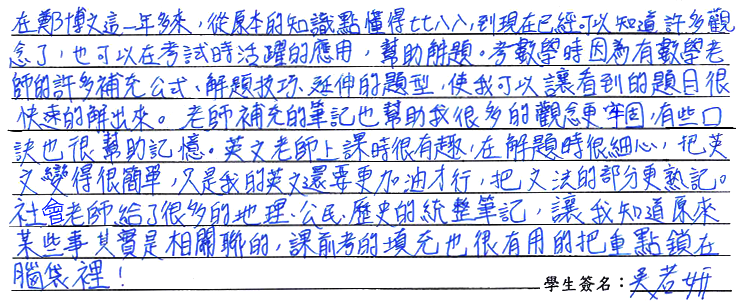 在鄭博文這一年多來，從原本的知識點懂得七七八八，到現在已經可以知道許多觀
念了，也可以在考試時活躍的應用，幫助解題。考數學時因為有數學老
師的許多補充公式、解題技巧、延伸的題型，使我可以讓看到的題目很
快速的解出來。老師補充的筆記也幫助我很多的觀念更牢固，有些口
訣也很幫助記憶。英文老師上課時很有趣，在解題時很細心，把英
文變得很簡單，只是我的英文還要更加油才行，把文法的部分更熟記。
社會老師給了很多的地理、公民、歷史的統整筆記，讓我知道原來
某些事其實是相關聯的，課前考的填充也很有用的把重點鎖在
腦袋裡！
學生簽名：吳若妍